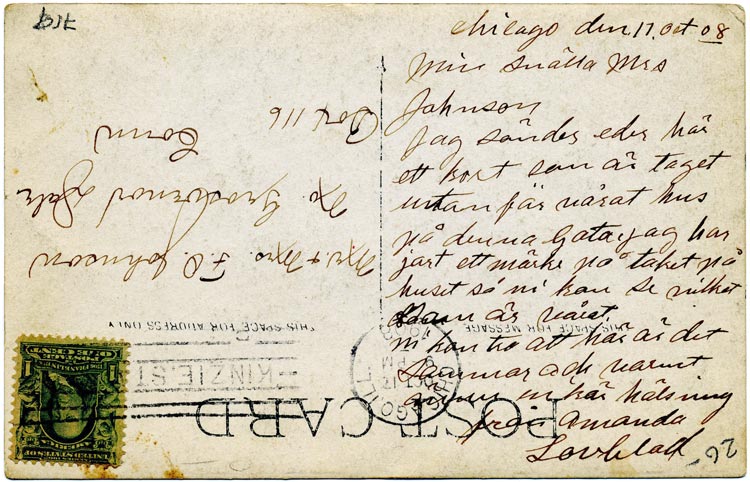 Chicago den 17. Oct 08
Min snälla Mrs
Johnson
Jag sänder eder här
ett kort som är taget
utanför vårat hus
på denna Gata jag har
jort ett märke på taket på
huset så ni kan se vilket
som är vårat.
ni kan tro att här är det
sommar och varmt
ännu kär hälsning
från Amanda
Lovblad
26
Mr & Mrs. F. O. Johnson
No Grosvenor Dale
Conn
Box 116
POST CARD
THIS SPACE FOR ADDRESS ONLY
THIS SPACE FOR MESSAGE
CHICAGO, ILL
OCT 17
PM
KINZIE ST
POSTAGE
ONE CENT
1 1
FRANKLIN
UNITED STATES OF
AMERICA